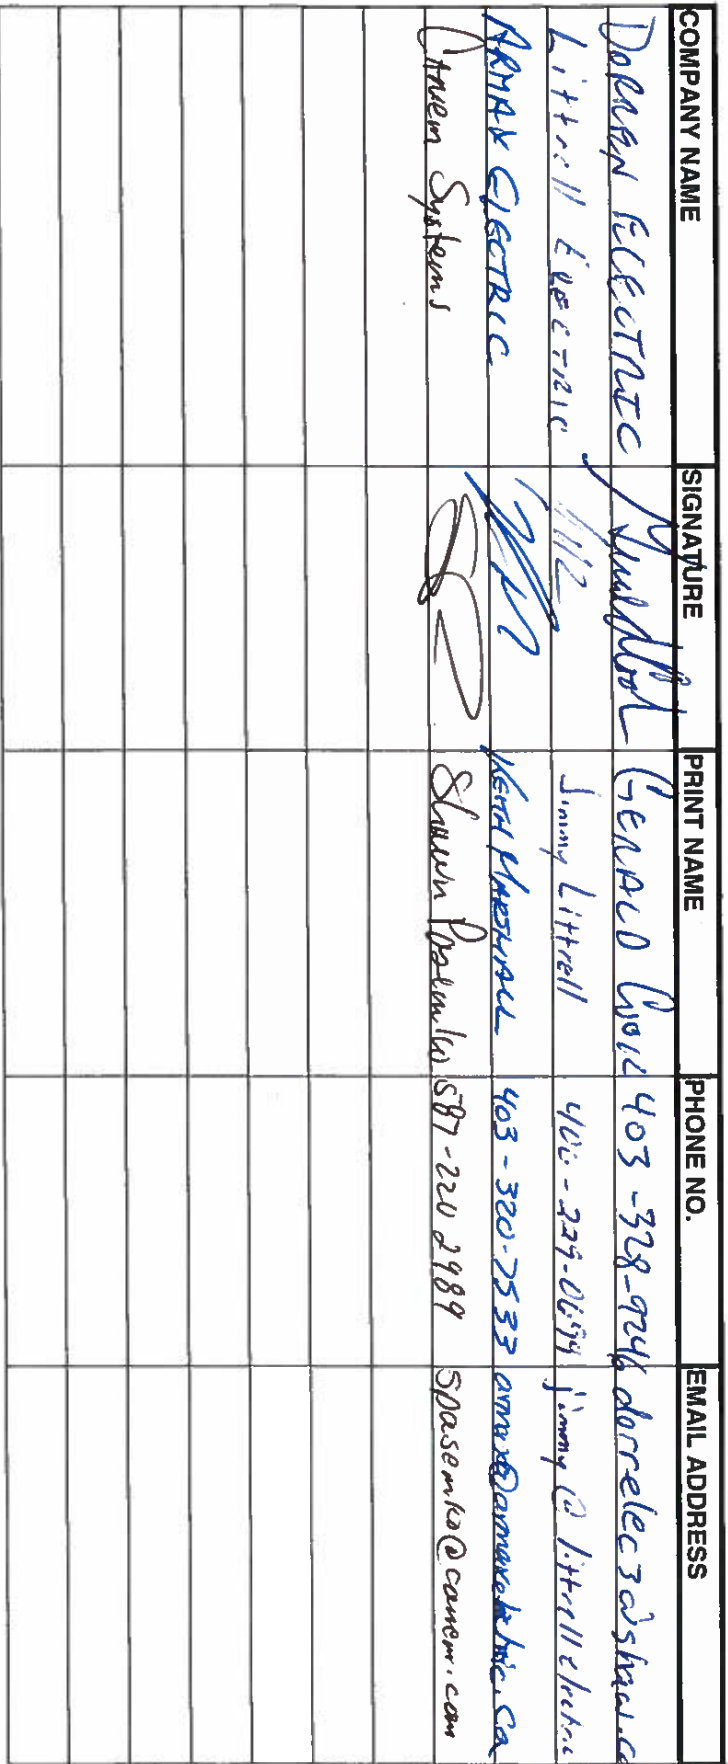 COMPANY NAME SIGNATURE PRINT NAME PHONE NO. EMAIL ADDRESS
DORRAN ELECTRIC GERALD 403-328-9246 dorrelec3@shaw.c
Littrell ELECTRIC Jimmy Littrell 406-229-0699 jimmy@littrellelectric
ARMAX ELECTRIC KEITH MARSHALL 403-320-7533 armax@armaxelectric.ca
Canem Systems Shawn Pasemko 587-220 2989 spasemko@canem.com